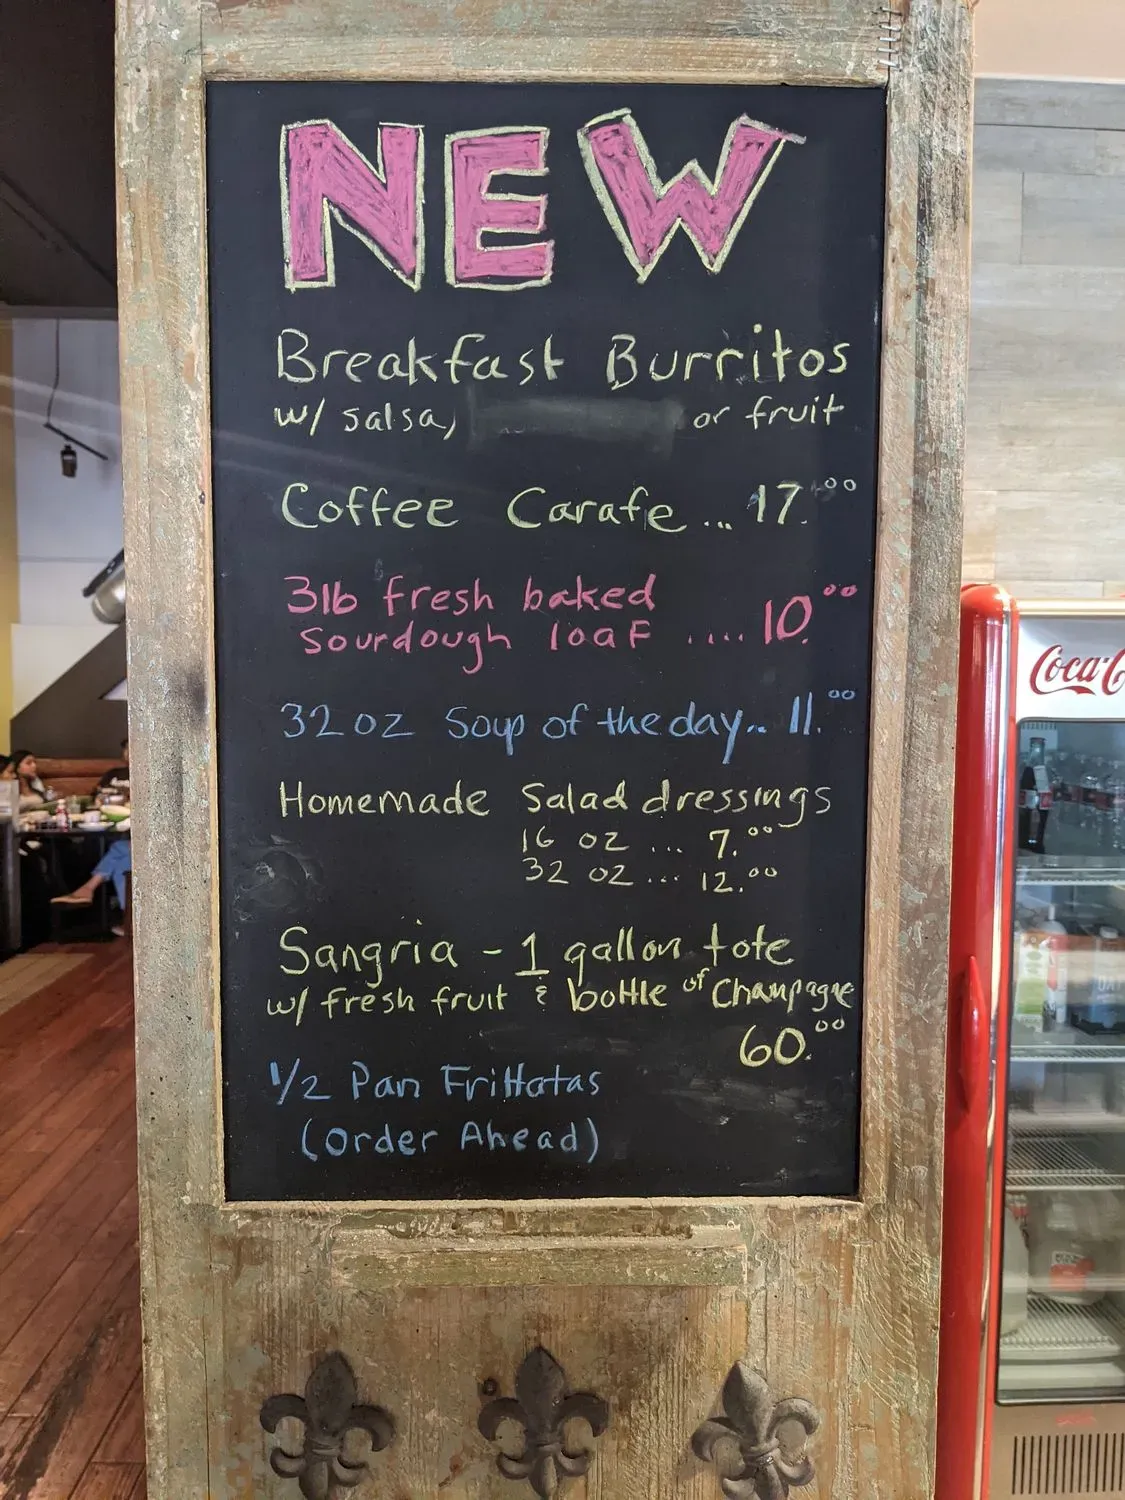 NEW
Breakfast Burritos
w/ salsa, or fruit
Coffee Carafe ... 17.00
3lb fresh baked
sourdough loaf .... 10.00
32 oz Soup of the day.. 11.00
Homemade Salad dressings
16 oz ... 7.00
32 oz ... 12.00
Sangria - 1 gallon tote
w/ fresh fruit & bottle of Champagne
60.00
1/2 Pan Frittatas
(Order Ahead)
Coca-C